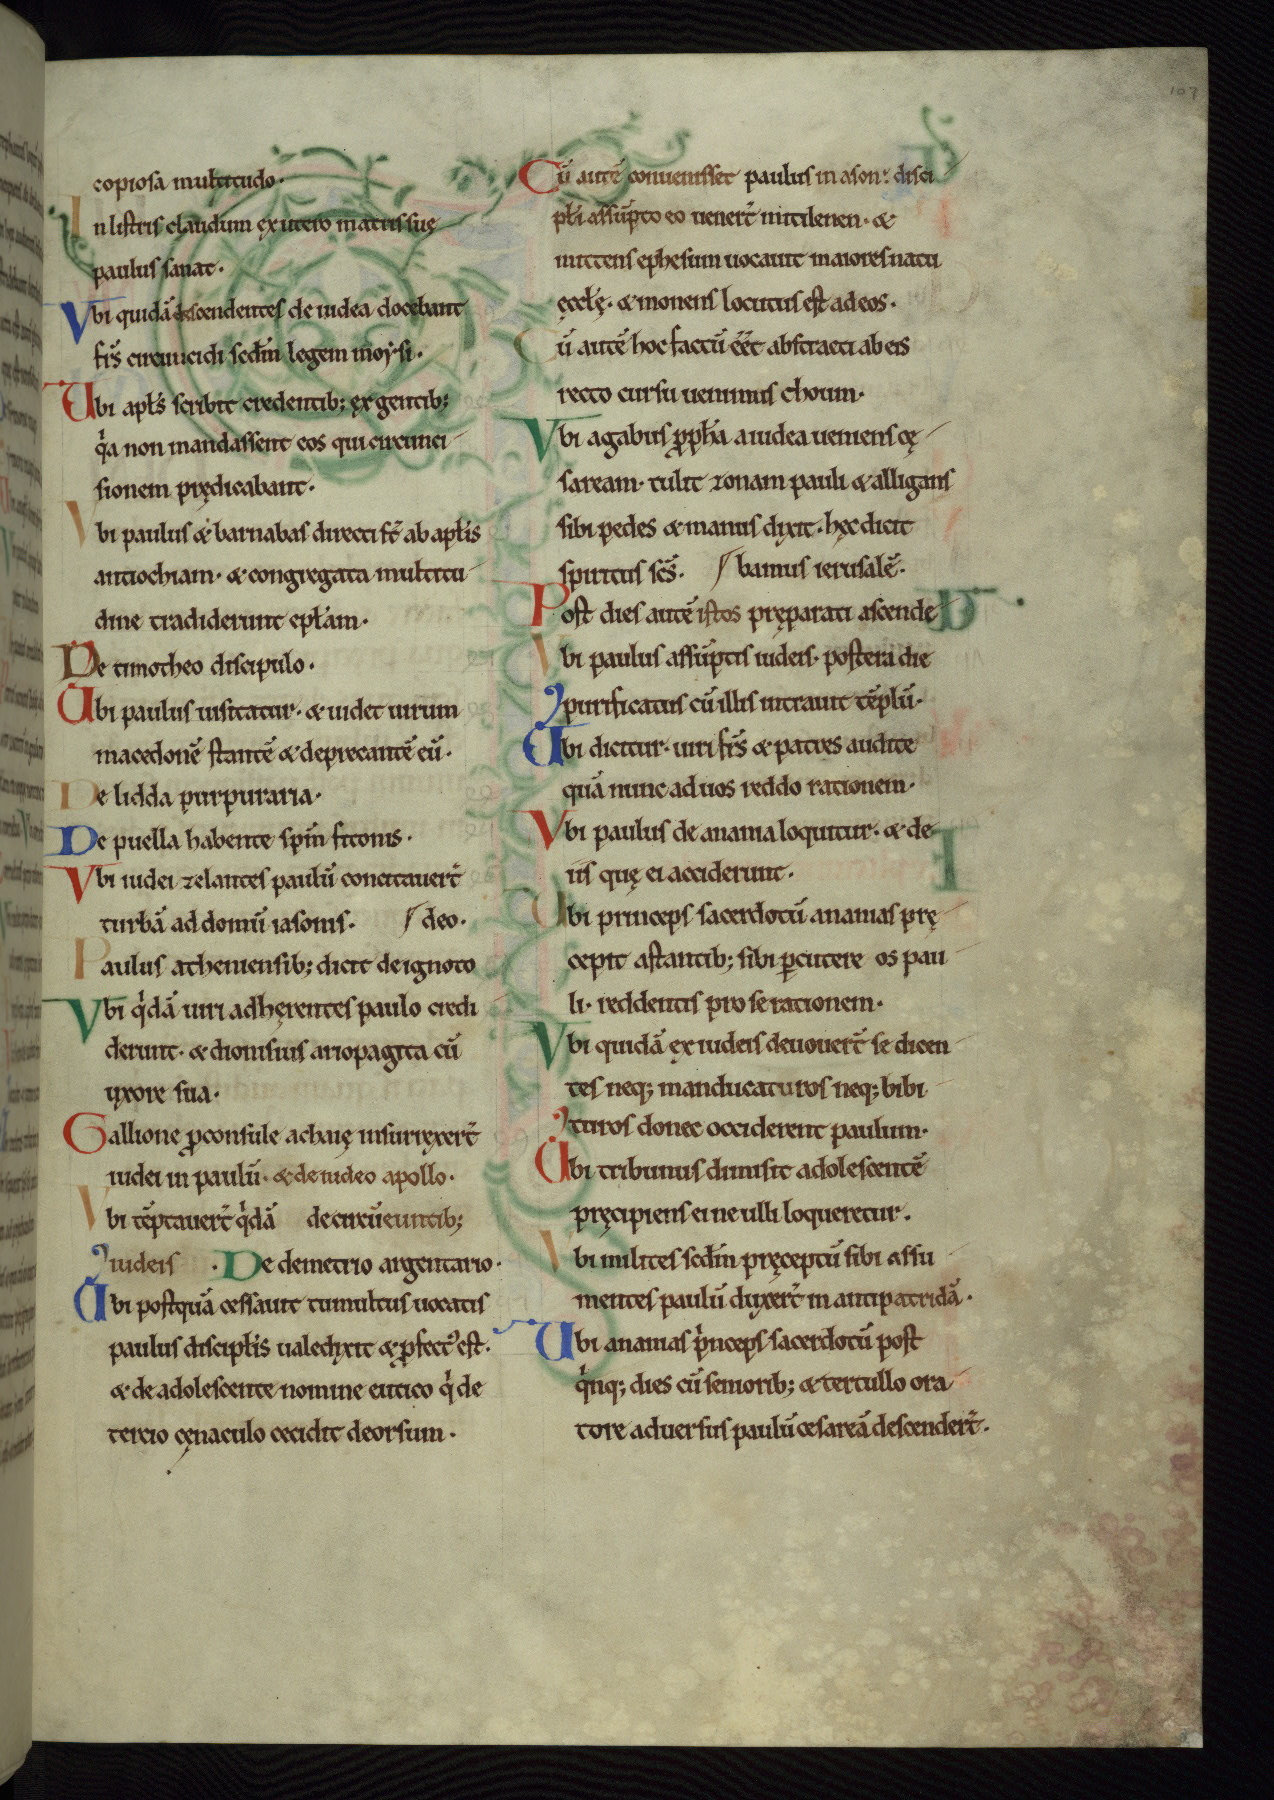 107
copiosa multitudo·
In listris claudum ex utero matris suę
paulus sanat·
Vbi quidā descendentes de iudea docebant
fr̄s circuncidi scd̄m legem moẏsi·
Vbi apl̄s scribit credentib; ex gentib;
q̇a non mandassent eos qui circunci
sionem prędicabant·
Vbi paulus & barnabas directi st̄ ab apl̄is
antiochiam· & congregata multitu
dine tradiderunt epl̄am·
De timotheo discipulo·
Vbi paulus uisitatur· & uidet uirum
macedonē stantē & deprecantē eū·
De lidda purpuraria·
De puella habente spm̄ fitonis·
Vbi iudei zelantes paulū concitauer̄t
turbā ad domū iasonis· deo·
Paulus atheniensib; dicit de ignoto
Vbi q̇dā uiri adhęrentes paulo credi
derunt· & dionisius ariopagita cū
uxore sua·
Gallione ꝓconsule achaię insurrexer̄t
iudei in paulū· & de iudeo apollo·
Vbi tēptauer̄t q̇dā de circūeuntib;
iudeis · De demetrio argentario·
Vbi postquā cessauit tumultus uocatis
paulus discipl̄is ualedixit & ꝓfect᾿ est·
& de adolescente nomine eutico q̇ de
tercio cęnaculo cecidit deorsum·
Cū autē conuenisset paulus in ason: disci
pl̄i assūpto eo uener̄t mitilenen· &
mittens ephesum uocauit maiores natu
ęccl̄ę· & monens locutus est ad eos·
Cū autē hoc factū eēt abstracti ab eis
recto cursu uenimus choum·
Vbi agabus ꝓph̄a a iudea ueniens cę
saream· tulit zonam pauli & alligans
sibi pedes & manus dixit· hęc dicit
spiritus sc̄s· bamus ierusalē·
Post dies autē istos pręparati ascende
Vbi paulus assūptis iudeis· postera die
purificatus cū illis intrauit tēplū·
Vbi dicitur· uiri fr̄s & patres audite
quā nunc ad uos reddo rationem·
Vbi paulus de anania loquitur· & de
iis quę ei acciderunt·
Vbi princeps sacerdotū ananias prę
cepit astantib; sibi ꝑcutere os pau
li· reddentis pro se rationem·
Vbi quidā ex iudeis deuouer̄t se dicen
tes neq; manducaturos neq; bibi
turos donec occiderent paulum·
Vbi tribunus dimisit adolescentē
pręcipiens ei ne ulli loqueretur·
Vbi milites scd̄m pręceptū sibi assu
mentes paulū duxer̄t in antipatridā·
Vbi ananias ṗnceps sacerdotū post
q̇nq; dies cūseniorib; & tertullo ora
tore aduersus paulū cesareā descender̄t·